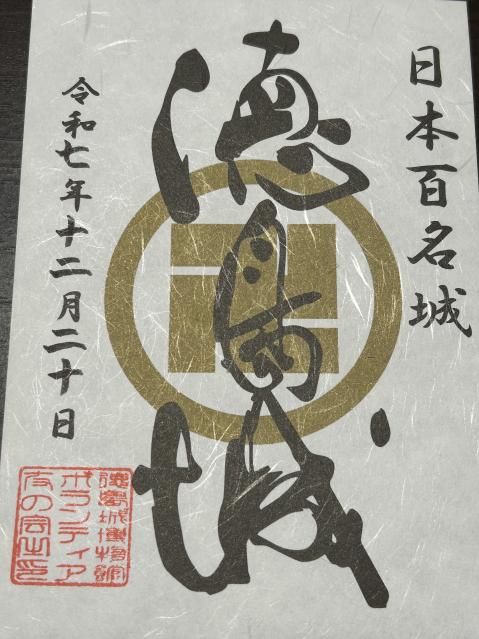 日本百名城
徳島城
令和七年十二月二十日
徳島城博物館
ボランティア
友の会之印